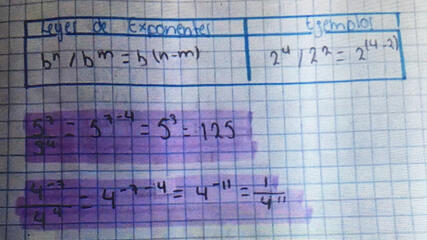 Leyes de Exponentes Ejemplos
bⁿ / bᵐ = b⁽ⁿ⁻ᵐ⁾ 2⁴ / 2² = 2⁽⁴⁻²⁾
5⁷/5⁴ = 5⁷⁻⁴ = 5³ = 125
4⁻⁷/4⁴ = 4⁻⁷⁻⁴ = 4⁻¹¹ = 1/4¹¹